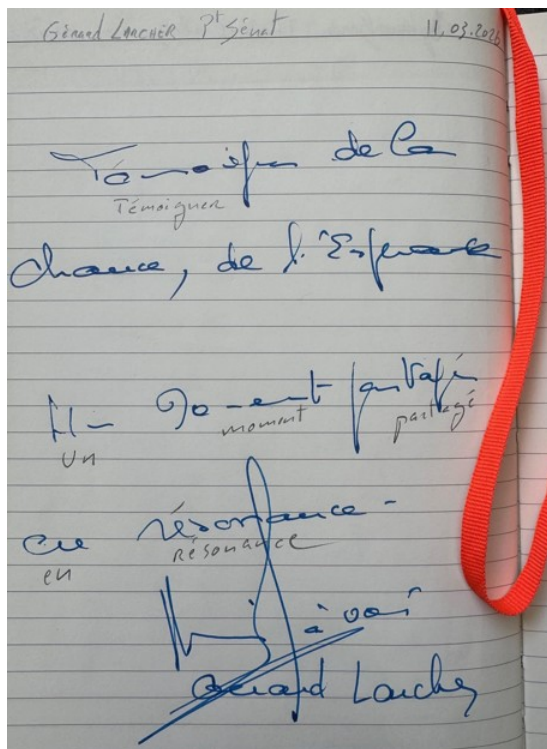 Gérard LARCHER Pt Sénat 11.03.2026
Témoigner de la
Témoigner
chance, de l'Espérance
Un moment partagé
Un moment partagé
en résonance -
en résonance
à vous
Gérard Larcher